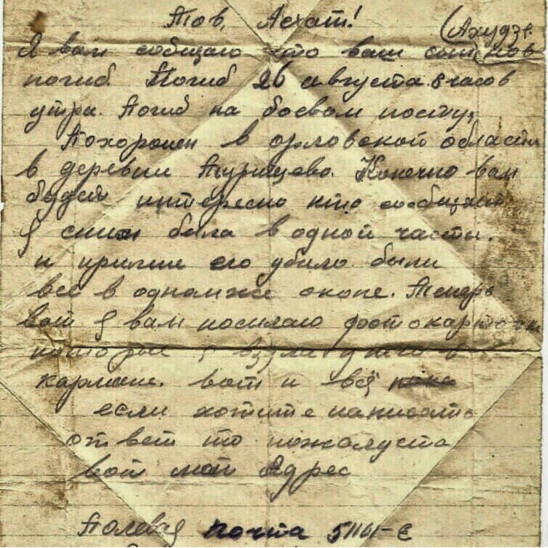 Тов. Асхат!
(Ахудзе.
Я вам сообщаю что ваш сын
погиб. Погиб 26 августа 8 часов
утра. Погиб на боевом посту,
Похоронен в орловской области
в деревни Конечно вам
будет интересно кто сообщает
я с ним была в одной части.
и его убило были
все в одном же окопе. Теперь
вот я вам посылаю фотокарточки
которые я взяла у него в
кармане. вот и всё
если хотите написать
ответ то пожалуста
вот мой Адрес
Полевая почта 51161-Е